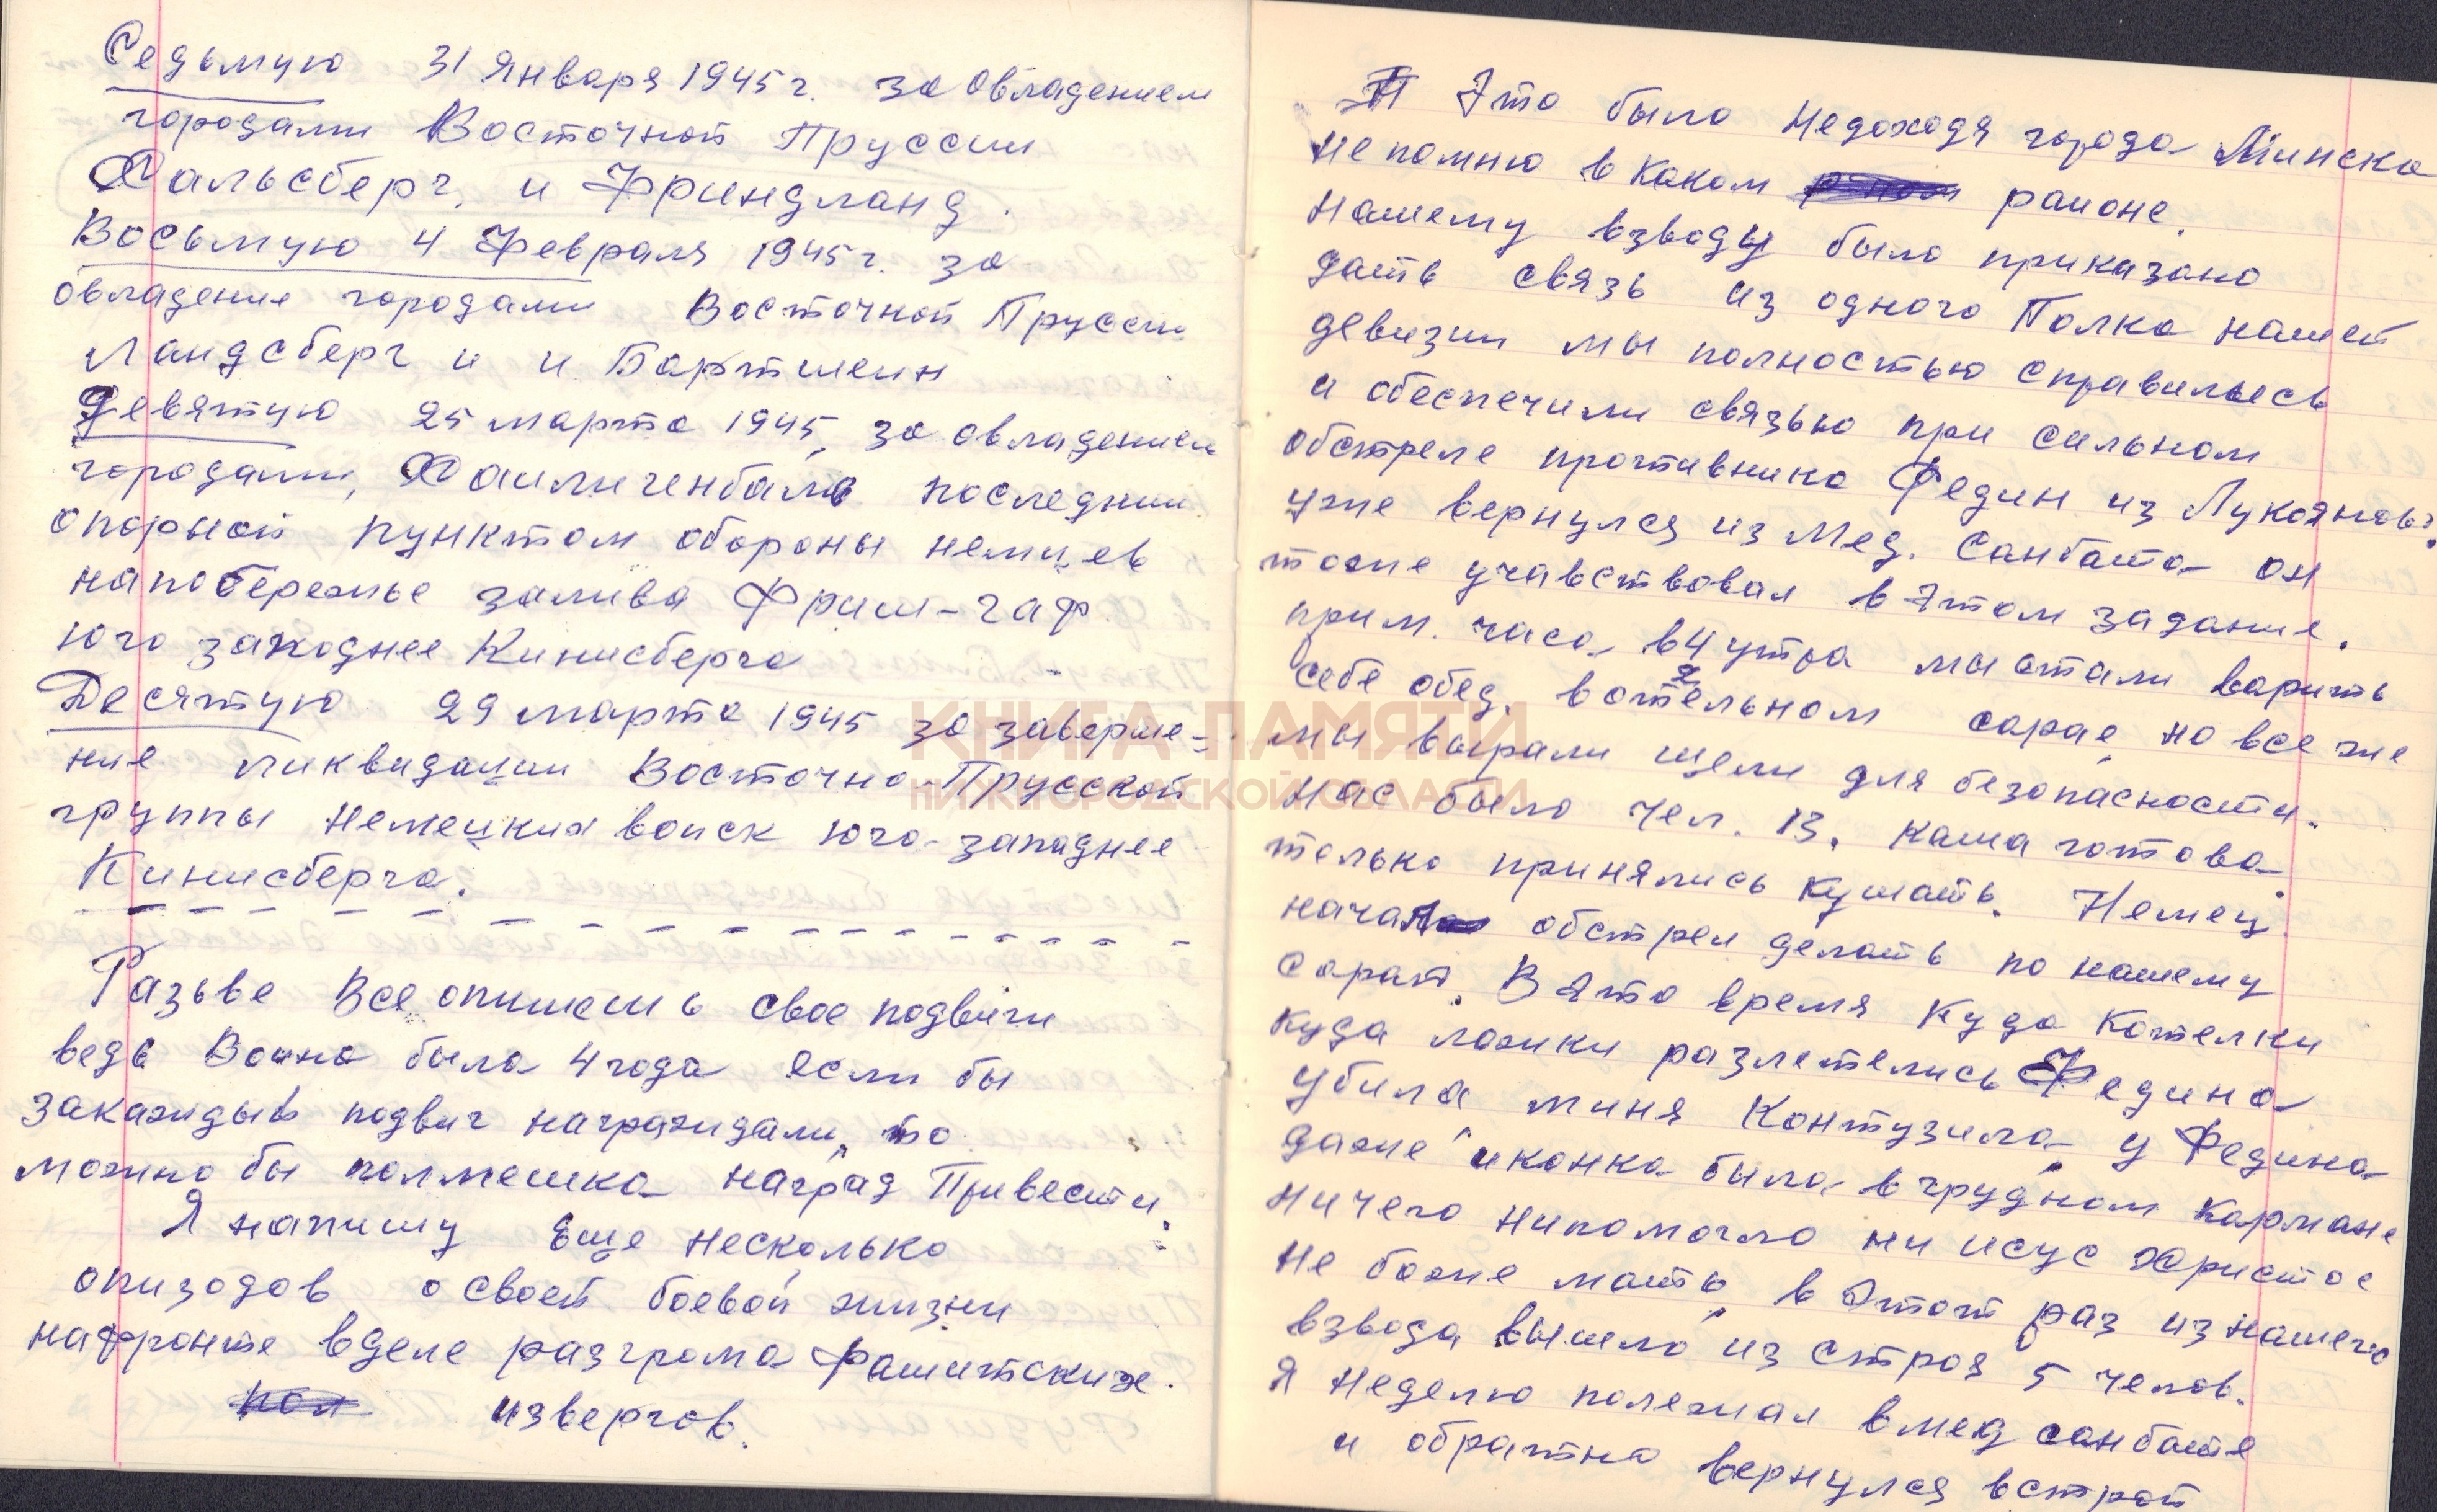 Седьмую 31 Января 1945 г. за овладением
городами Восточной Пруссии
Хальсберг, и Фриндланд.
Восьмую 4 Февраля 1945 г. за
овладение городами Восточной Прусси
Ландсберг и и Бартшеин
Девятую 25 марта 1945, за овладением
городами, Хаилигенбаль последним
опорной пунктом обороны немцев
напобережье залива Фриш-гаф
юго западнее Кинисберга
Десятую 29 марта 1945 за заверше-
ние ликвидации Восточно-Прусской
группы немецких воиск юго-западнее
Кинисберга.
Разьве все опишешь свое подвиги
ведь Воина была 4 года если бы
закаждый подвиг награждали, то
можно бы полмешка наград Привести.
Я напишу Еще несколько
опизодов о своей боевой жизни
нафронте вделе разгрома фашитских
извергов.
Это было недоходя города Минска
не помню в каком раионе.
нашему взводу было приказано
дать связь из одного Полка нашей
девизии мы полностью справились
и обеспечили связью при сильном
обстреле противника Федин из Лукоянова
уже вернулся из Мед. Санбата он
тоже учавствовал в этом задание.
прим. часа в 4 утра мы стали варить
себе обед. в отдельном сарае, но все же
мы вырали щели для безопасности.
нас было чел. 13. каша готова.
только принялись кушать. Немец
начал обстрел делать по нашему
сараю. В это время куда котелки
куда ложки разлетелись Федина
убила миня Контузила у Федина
даже иконка была в грудном кармане
ничего нипомогло ни исус христос
не боже мать, в этот раз изнашего
взвода вышло из строя 5 челов.
Я неделю полежал вмед санбате
и обратно вернулся встрой
КНИГА ПАМЯТИ
НИЖЕГОРОДСКОЙ ОБЛАСТИ